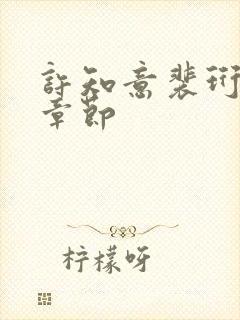 許知意裴珩
章節
柠檬呀